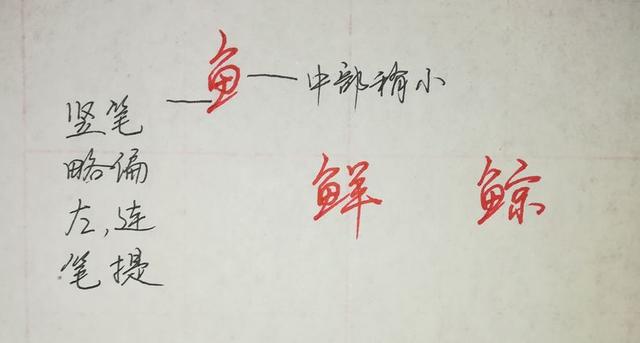 鱼
中部稍小
竖笔
略偏
左,连
笔提
鲜 鲸